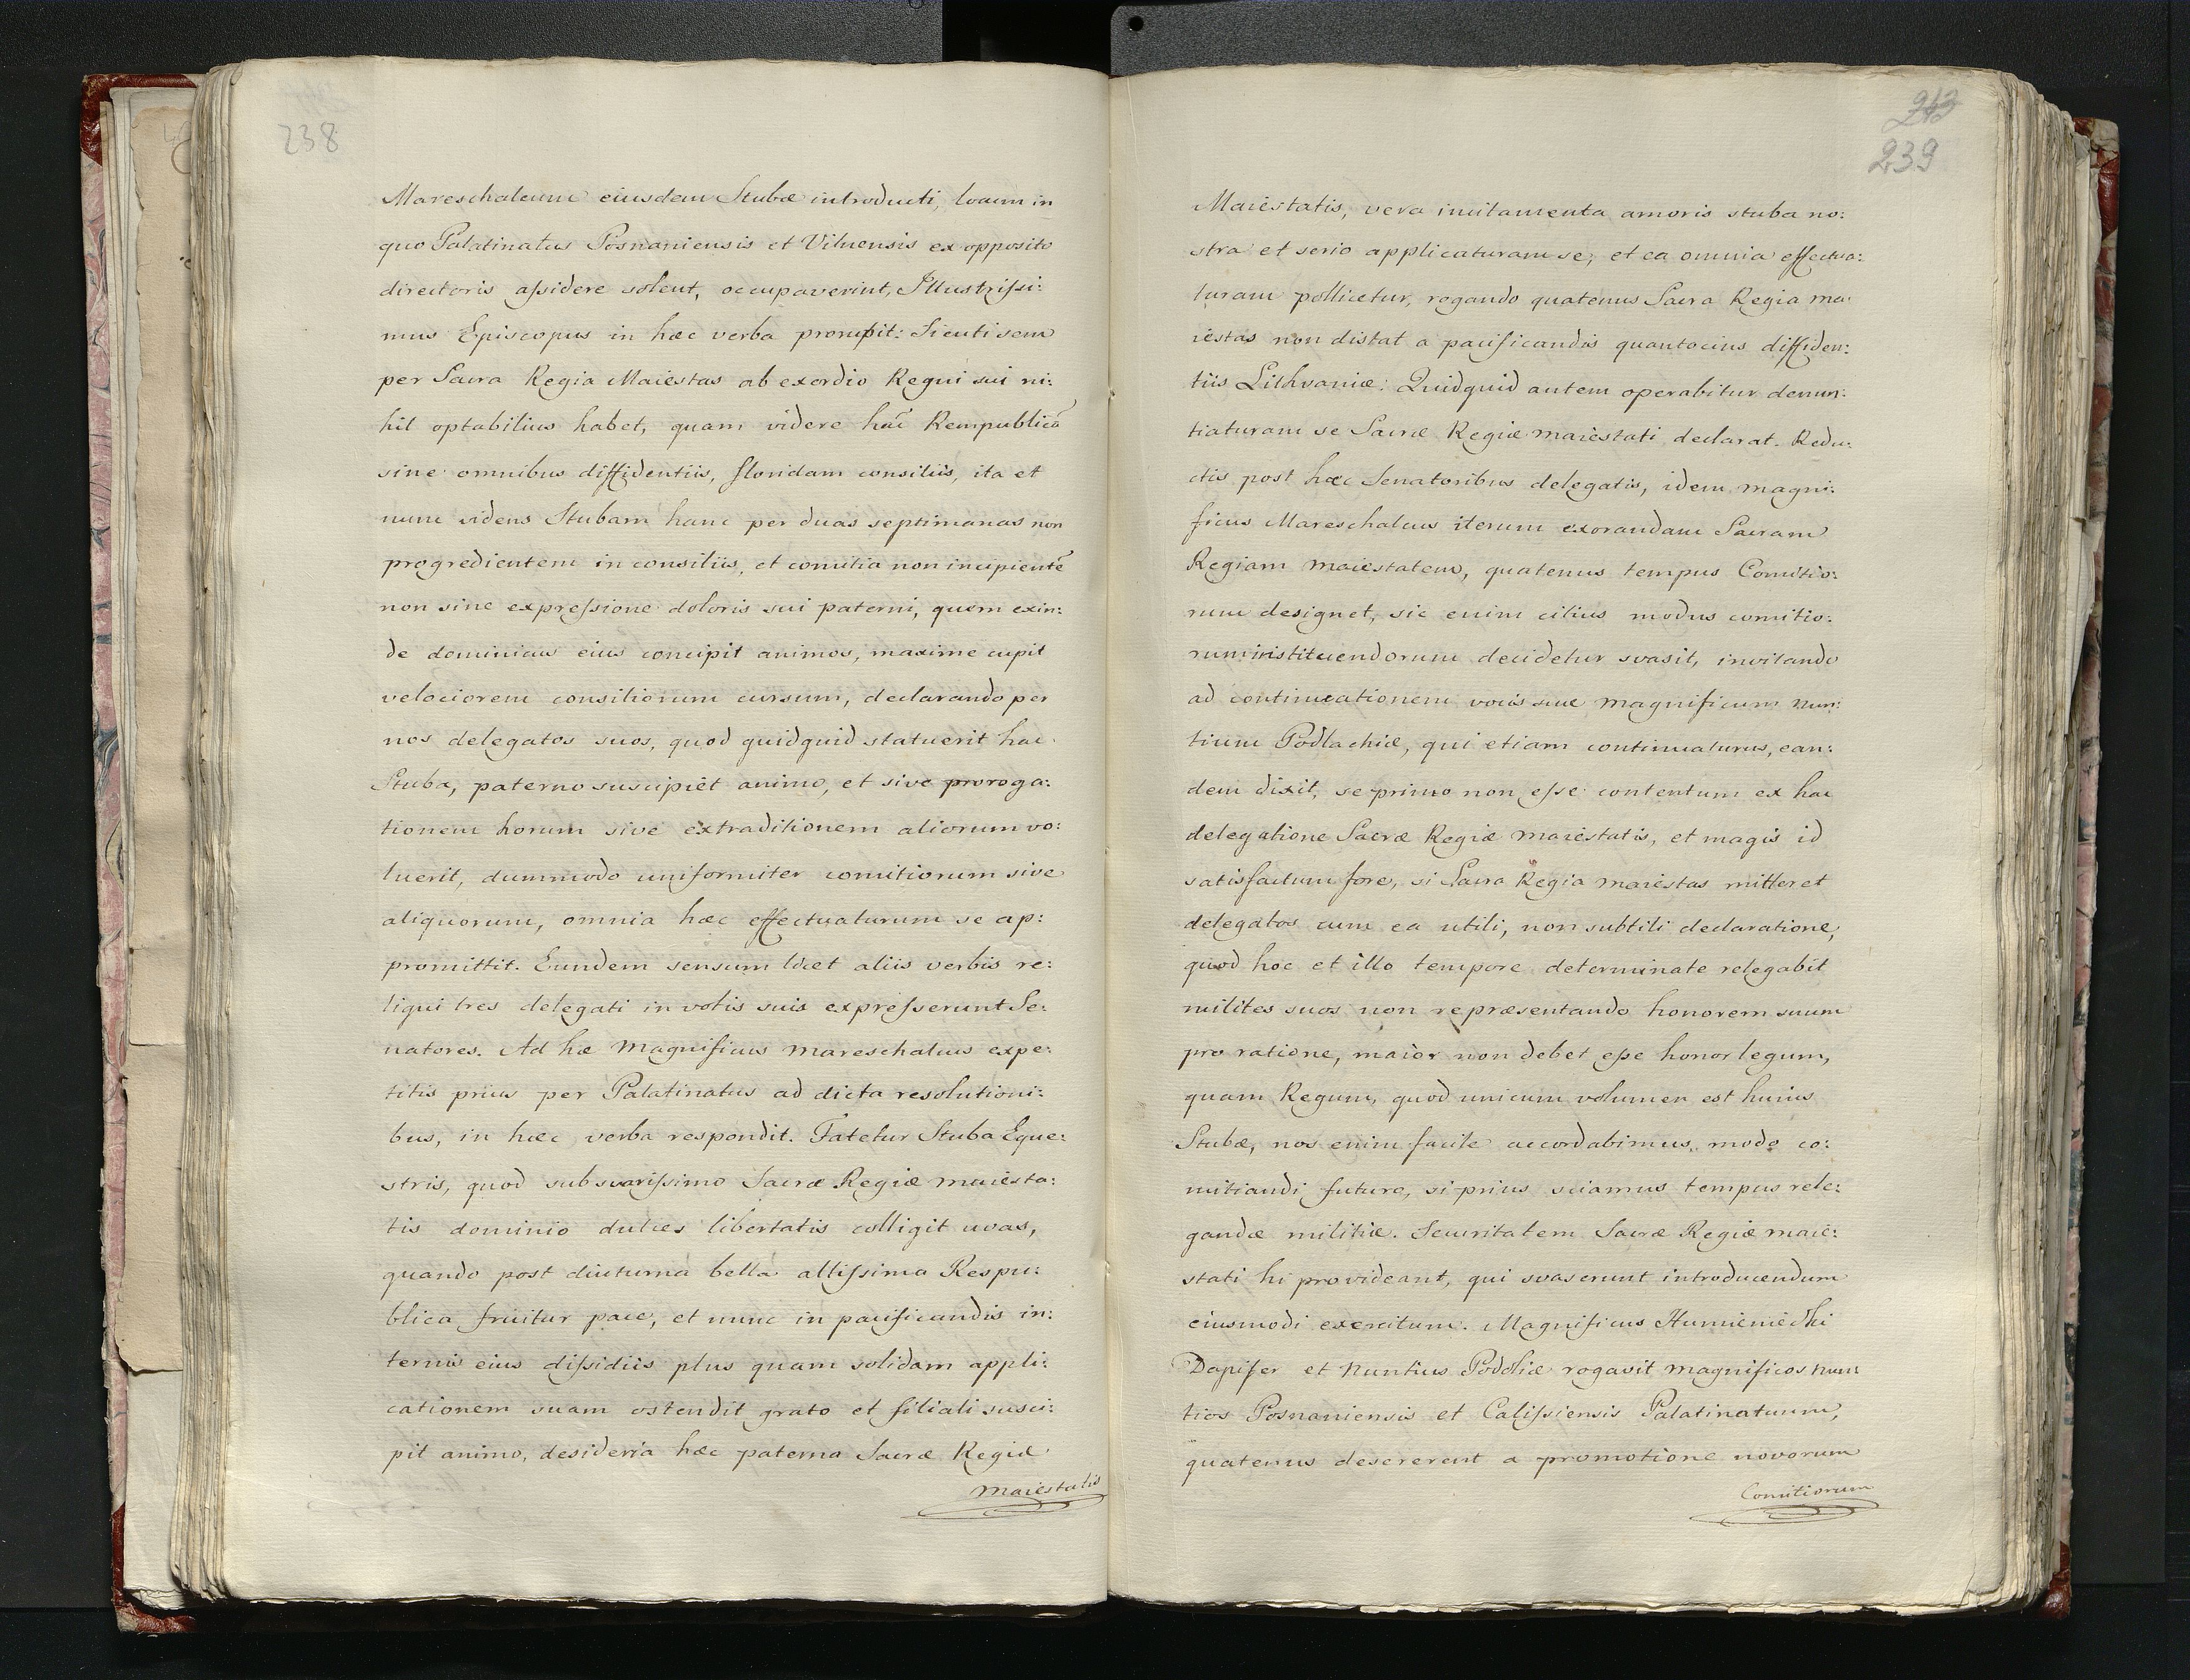 238
Mareschalcum eiusdem Stubæ introducti, locum in
quo Palatinatus Posnaniensis et Vilnensis ex opposito
directoris aſsidere solent, occupaverint, Illustriſsi:
mus Episcopus in hæc verba prorupit: Sicuti sem
per Sacra Regia Maiestas ab exordio Regni sui ni:
hil optabilius habet, quam videre hãc Rempublicã
sine omnibus diffidentiis, floridam consiliis, ita et
nunc videns Stubam hanc per duas septimanas non
progredientem in consiliis, et comitia non incipientẽ
non sine expreſsione doloris sui paterni, quem exin:
de dominicus eius concipit animos, maxime cupit
velociorem consiliorum cursum, declarando per
nos delegatos suos, quod quidquid statuerit hac
Stuba, paterno suscipiet animo, et sive proroga:
tionem horum sive extraditionem aliorum vo:
luerit, dummodo uniformiter comitiorum sive
aliquorum, omnia hæc effectuaturum se ap:
promittit. Eundem sensum licet aliis verbis re:
liqui tres delegati in votis suis expreſserunt Se:
natores. Ad hæ Magnificus Mareschalcus expe:
titis prius per Palatinatus ad dicta resolutioni:
bus, in hæc verba respondit. Fatetur Stuba Eque:
stris, quod sub svaviſsimo Sacræ Regiæ maiesta:
tis dominio dulces libertatis colligit uvas,
quando post diuturna bella altiſsima Respu:
blica fruitur pace, et nunc in pacificandis in:
ternis eius diſsidiis plus quam solidam appli:
cationem suam ostendit grato et filiali susci:
pit animo, desideria hæc paterna Sacræ Regiæ
Maiestatis
243
239
Maiestatis, vera incitamenta amoris stuba no:
stra et serio applicaturam se, et ea omnia effectua:
turam pollicetur, rogando quatenus Sacra Regia ma:
iestas non distat a pacificandis quantocius diffiden:
tiis Lithvaniæ: Quidquid autem operabitur denun:
tiaturam se Sacræ Regiæ maiestati declarat. Redu:
ctis post hæc Senatoribus delegatis, idem magni:
ficus Mareschalcus iterum exorandam Sacram
Regiam Maiestatem, quatenus tempus Comitio:
rum designet, sic enim citius modus comitio:
rum instituendorum decidetur svasit, invitando
ad continuationem vocis suæ Magnificum Nun:
tium Podlachiæ, qui etiam continuaturus, ean:
dem dixit, se primo non eſse contentum ex hac
delegatione Sacræ Regiæ maiestatis, et magis id
satisfactum fore, si Sacra Regia maiestas mitteret
delegatos cum ea utili, non subtili declaratione,
quod hoc et illo tempore determinate relegabit
milites suos non repræsentando honorem suum
pro ratione, maior non debet eſse honor legum,
quam Regum, quod unicum volumen est huius
Stubæ, nos enim facile accordabimus modo co:
mitiandi futuro, si prius sciamus tempus rele:
gandæ militiæ. Securitatem Sacræ Regiæ maie:
stati hi provideant, qui svaserunt introducendum
eiusmodi exercitum. Magnificus Humieniecki
Dapifer et Nuntius Podoliæ rogavit magnificos Nun
tios Posnaniensis et Caliſsiensis Palatinatuum,
quatenus desererent a promotione novorum
Comitiorum